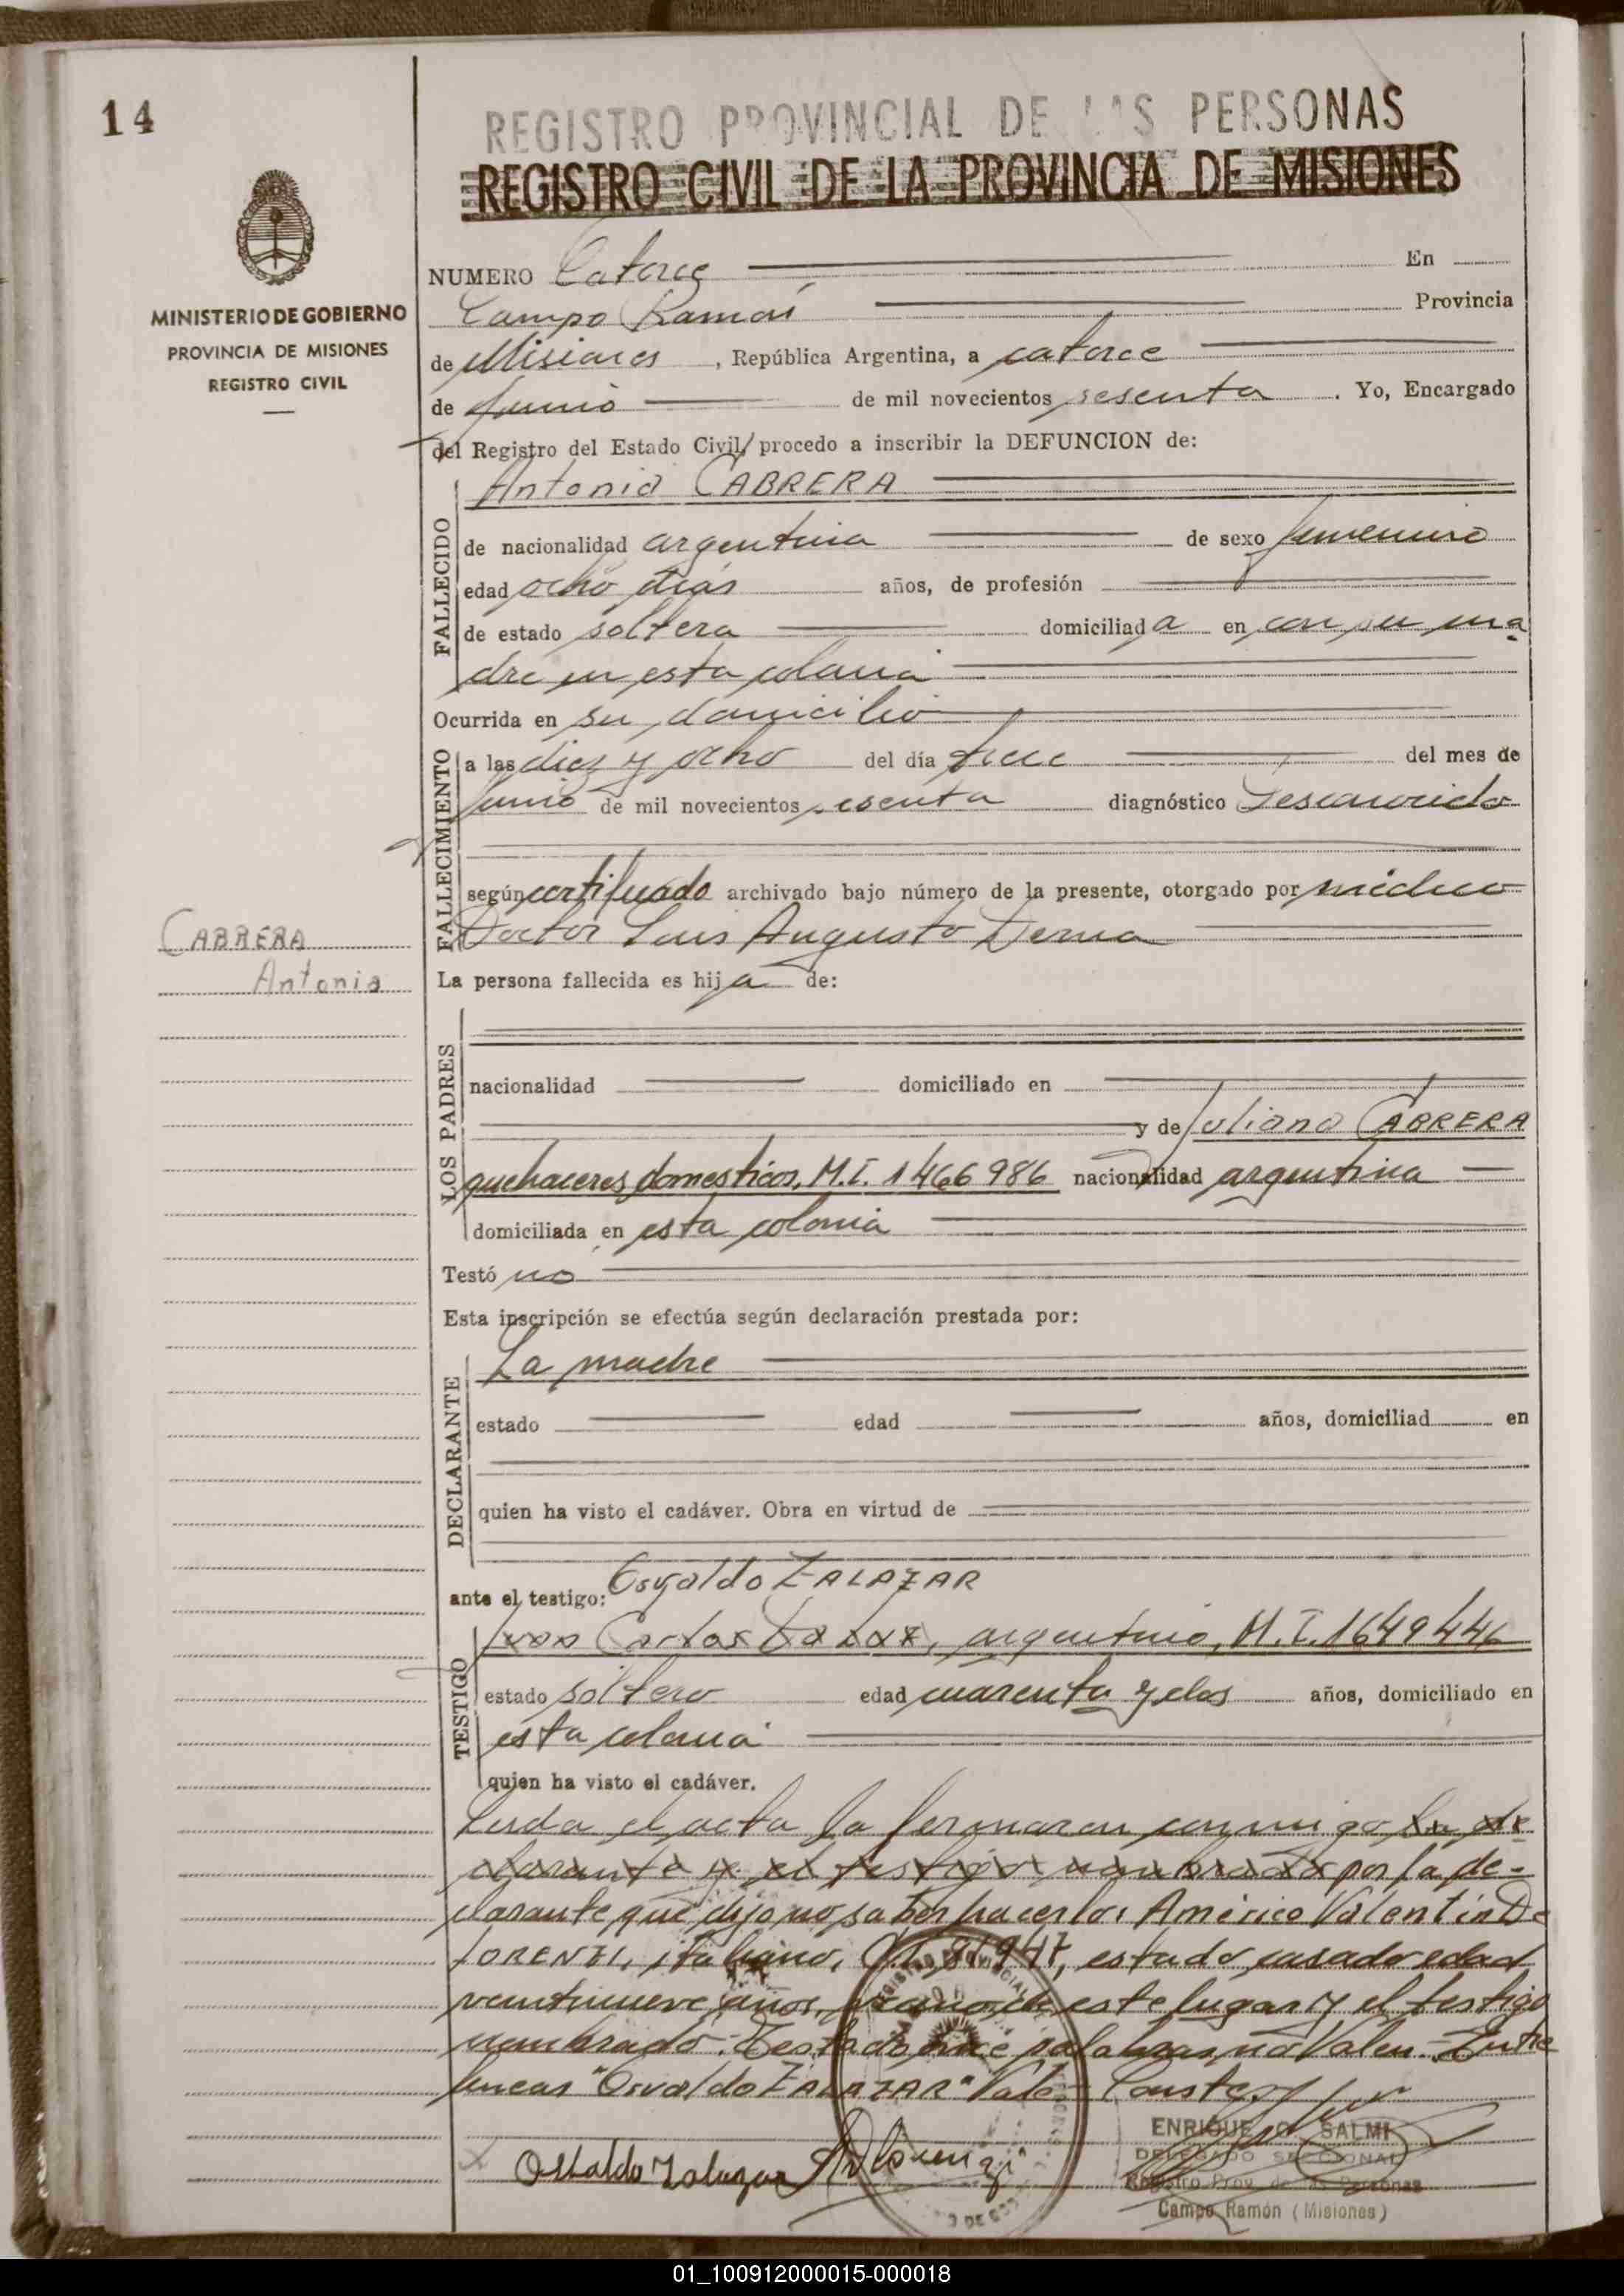 14
REGISTRO PROVINCIAL DE LAS PERSONAS
REGISTRO CIVIL DE LA PROVINCIA DE MISIONES
MINISTERIO DE GOBIERNO
PROVINCIA DE MISIONES
REGISTRO CIVIL
NUMERO Catorce En
Campo Ramón Provincia
de Misiones, República Argentina, a catorce
de Junio de mil novecientos sesenta. Yo, Encargado
del Registro del Estado Civil, procedo a inscribir la DEFUNCION de:
Antonia CABRERA
FALLECIDO
de nacionalidad argentina de sexo femenino
edad ocho dias años, de profesión
de estado soltera domiciliada en con su ma
dre en esta colonia
Ocurrida en su domicilio
FALLECIMIENTO
a las diez y ocho del día trece del mes de
Junio de mil novecientos sesenta diagnóstico Desconocido
según certificado archivado bajo número de la presente, otorgado por médico
Doctor Luis Augusto Derna
CABRERA
Antonia
La persona fallecida es hija de:
LOS PADRES
nacionalidad domiciliado en
y de Juliana CABRERA
quehaceres domesticos, M.I. 1466986 nacionalidad argentina
domiciliada en esta colonia
Testó no
Esta inscripción se efectúa según declaración prestada por:
DECLARANTE
La madre
estado edad años, domiciliad en
quien ha visto el cadáver. Obra en virtud de
ante el testigo: Osvaldo ZALAZAR
TESTIGO
Juan Carlos argentino, M.I. 1649446
estado soltero edad cuarenta y dos años, domiciliado en
esta colonia
quien ha visto el cadáver.
Leida el acta la firmaron conmigo la de
clarante y el testigo nombrado por la de-
clarante que dijo no saber hacerlo: Américo Valentín De
LORENZI, italiano, estado casado edad
veintinueve años, vecino de este lugar y el testigo
nombrado. Testado once palabras, no Valen. Entre
lineas "Osvaldo ZALAZAR" Vale. Conste.
Osvaldo Zalazar
ENRIQUE O. SALMI
DELEGADO SECCIONAL
Registro Prov. de las Personas
Campo Ramón (Misiones)
01_100912000015-000018